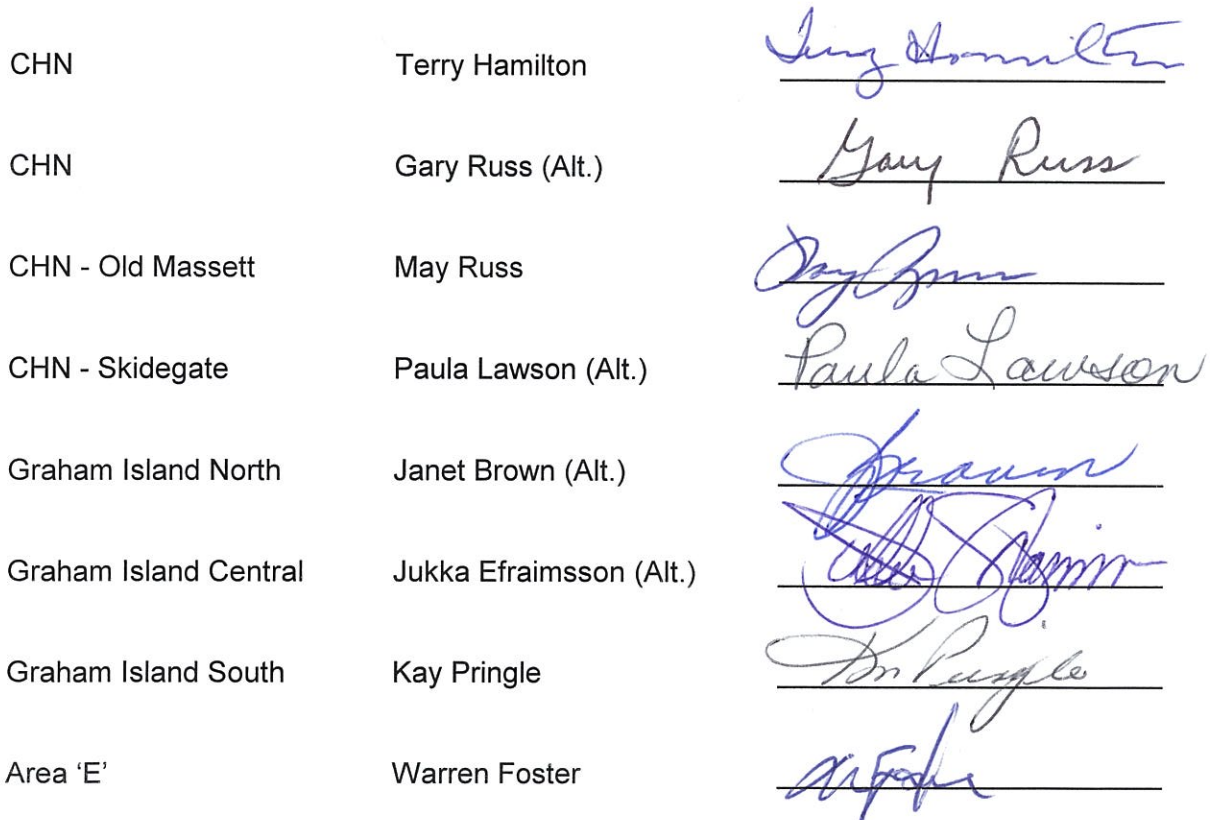 CHN Terry Hamilton Terry Hamilton
CHN Gary Russ (Alt.) Gary Russ
CHN - Old Massett May Russ
CHN - Skidegate Paula Lawson (Alt.) Paula Lawson
Graham Island North Janet Brown (Alt.) JBrown
Graham Island Central Jukka Efraimsson (Alt.)
Graham Island South Kay Pringle Pringle
Area ‘E’ Warren Foster